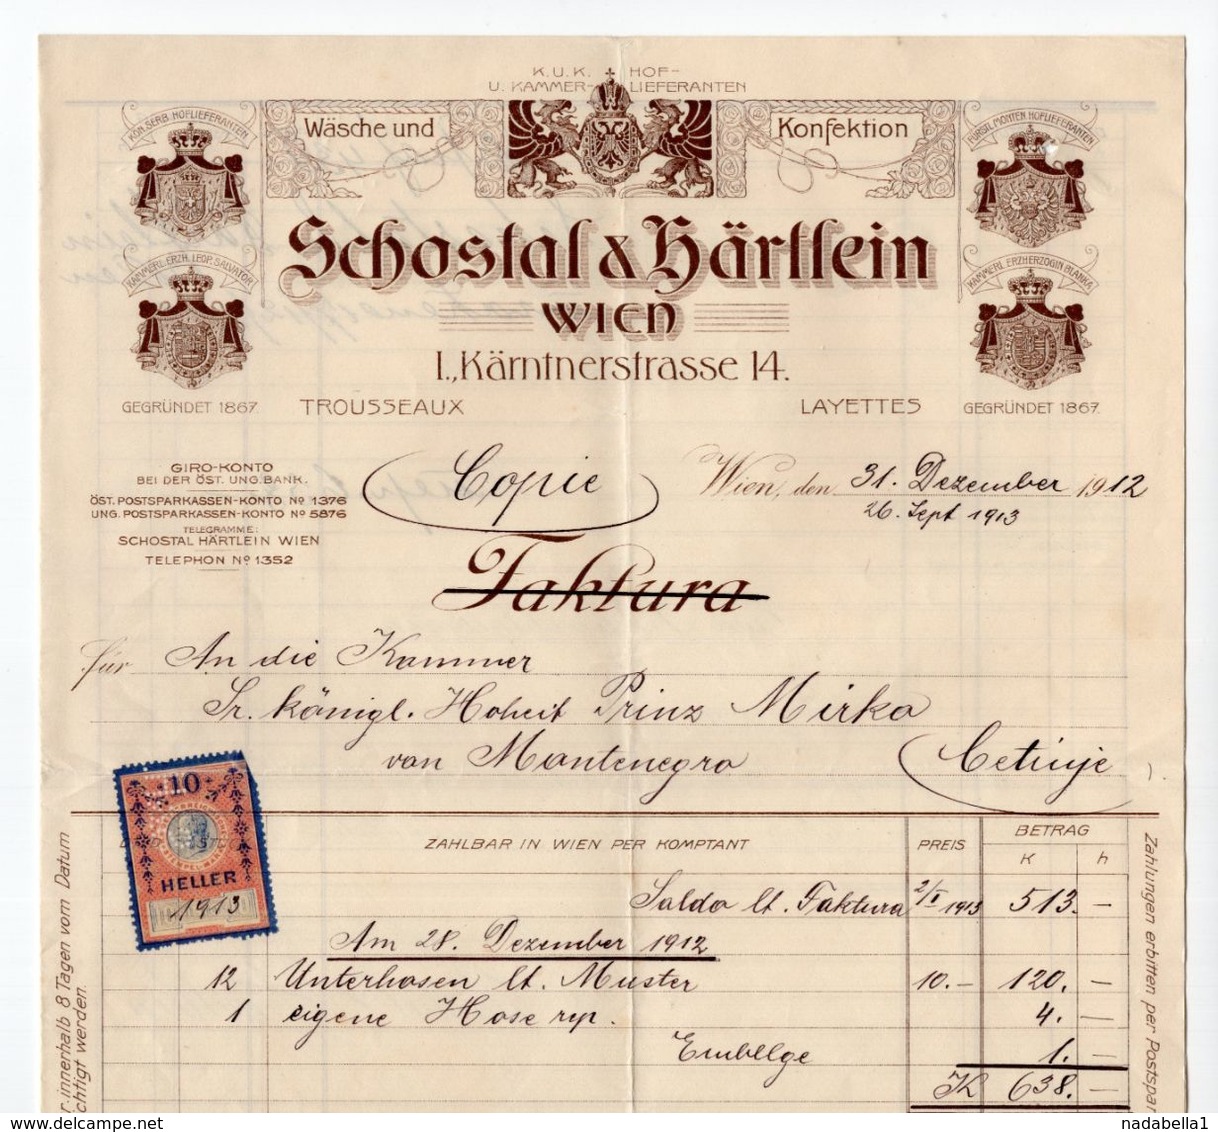 K.U.K. HOF-
U. KAMMER-LIEFERANTEN
KÖN. SERB. HOFLIEFERANTEN
Wäsche und
Konfektion
FÜRSTL. MONTEN. HOFLIEFERANTEN
Schostal & Härtlein
KAMMERL. ERZH. LEOP. SALVATOR
KAMMERL. ERZHERZOGIN BLANKA
WIEN
I., Kärntnerstrasse 14.
GEGRÜNDET 1867.
TROUSSEAUX
LAYETTES
GEGRÜNDET 1867.
GIRO-KONTO
BEI DER ÖST. UNG. BANK.
ÖST. POSTSPARKASSEN-KONTO No 1376
UNG. POSTSPARKASSEN-KONTO No 5876
TELEGRAMME:
SCHOSTAL HÄRTLEIN WIEN
TELEPHON No 1352
Copie
Wien, den 31. Dezember 1912
26. Sept 1913
Faktura
für An die Kammer
Sr. königl. Hoheit Prinz Mirko
von Montenegro Cetinje
10
HELLER
1913
ZAHLBAR IN WIEN PER KOMPTANT
PREIS
BETRAG
K h
Saldo lt. Faktura 2/I 1913 513.—
Am 28. Dezember 1912
12 Unterhosen lt. Muster 10.— 120.—
1 eigene Hose rep. 4.—
Emballge 1.—
K 638.—
innerhalb 8 Tagen vom Datum
chtigt werden.
Zahlungen erbitten per Postspar
nadabella1